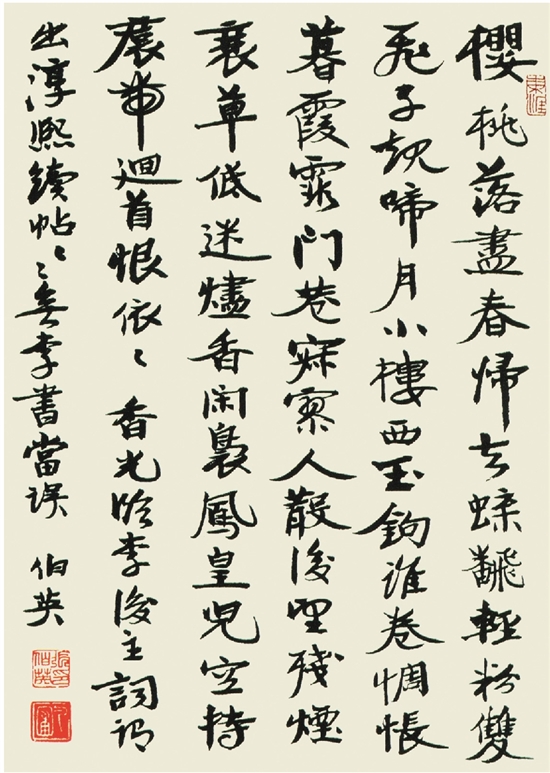 櫻桃落盡春歸去蝶飜輕粉雙
飛子規啼月小樓西玉鉤誰卷惆悵
暮霞霏門巷寂寥人散後望殘煙
衰草低迷爐香閑裊鳳皇兒空持
羅帶迴首恨依〻 香光臨李後主詞謂
出淳熙續帖〻〻無李書當誤 伯英